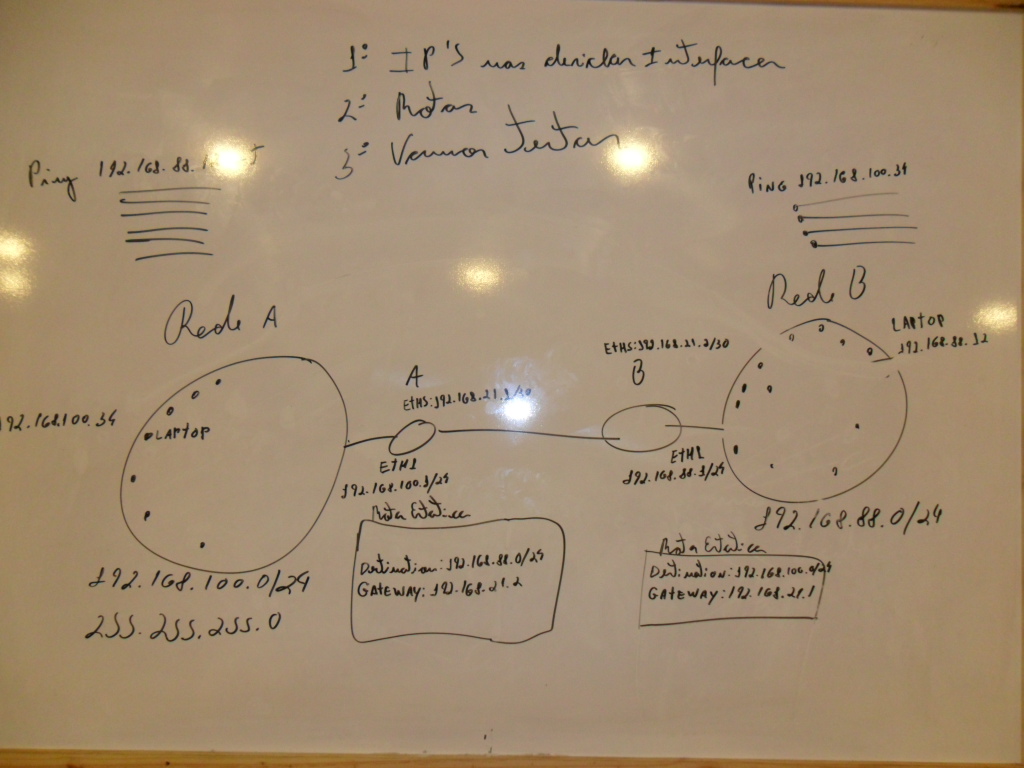 1º IP'S nas devidas Interfaces
2º Rotas
3º Vamos testar
Ping 192.168.88.
PING 192.168.100.34
Rede A
Rede B
LAPTOP
192.168.88.32
ETH5:192.168.21.2/30
B
A
ETH5:192.168.21.1/30
192.168.100.34
LAPTOP
ETH1
192.168.100.1/24
ETH1
192.168.88.1/24
192.168.88.0/24
Rota Estatica
Destination: 192.168.88.0/24
GATEWAY: 192.168.21.2
Rota Estatica
Destination: 192.168.100.0/24
GATEWAY: 192.168.21.1
192.168.100.0/24
255.255.255.0